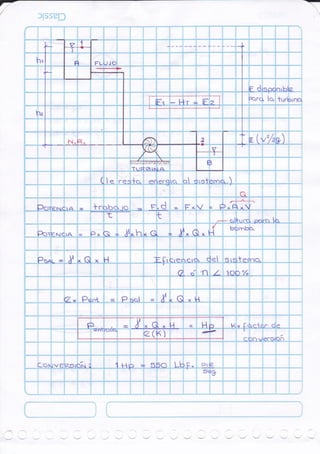 Classic
h₁
A
FLUJO
E disponible
para la turbina
E1 - HT = E2
h₂
2
E (v²/2g)
N.R.
B
TURBINA
(le resta energia al sistema)
Q
POTENCIA = trabajo / t = F.d / t = F x V = P x A x V
altura para la
bomba.
POTENCIA = P x Q = γ x h x Q = γ x Q x H
PSAL = γ x Q x H
Eficiencia del sistema
e ó η < 100%
e x Pent = Psal = γ x Q x H
Pentrada = γ x Q x H / e(K) = Hp
K = factor de
conversión
CONVERSIÓN: 1 Hp = 550 Lbf. pie / seg